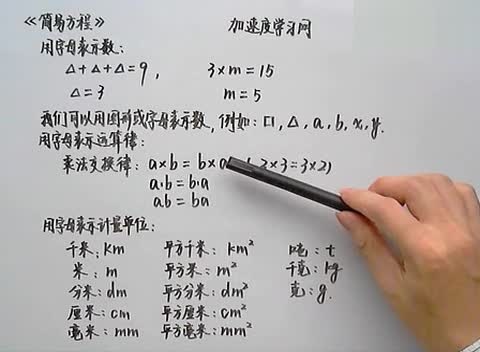 《简易方程》 加速度学习网
用字母表示数:
△+△+△=9, 3×m=15
△=3 m=5
我们可以用图形或字母表示数, 例如: 口, △, a, b, x, y.
用字母表示运算律:
乘法交换律: a×b = b×a 2×3=3×2)
a·b = b·a
ab = ba
用字母表示计量单位:
千米: km 平方千米: km² 吨: t
米: m 平方米: m² 千克: kg
分米: dm 平方分米: dm² 克: g.
厘米: cm 平方厘米: cm²
毫米: mm 平方毫米: mm²